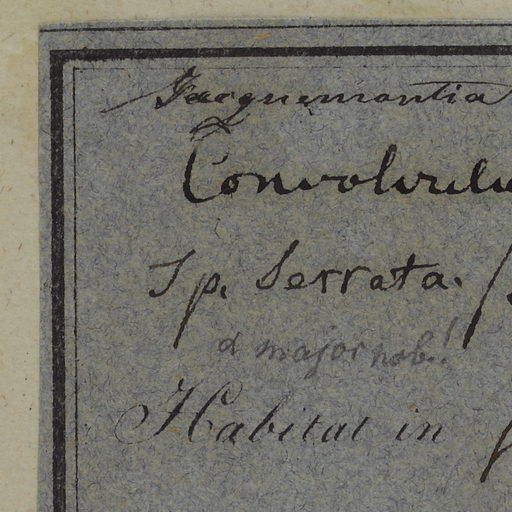 Jacquemontia
Convolvulu
Sp. Serrata.
α major nob.!
Habitat in